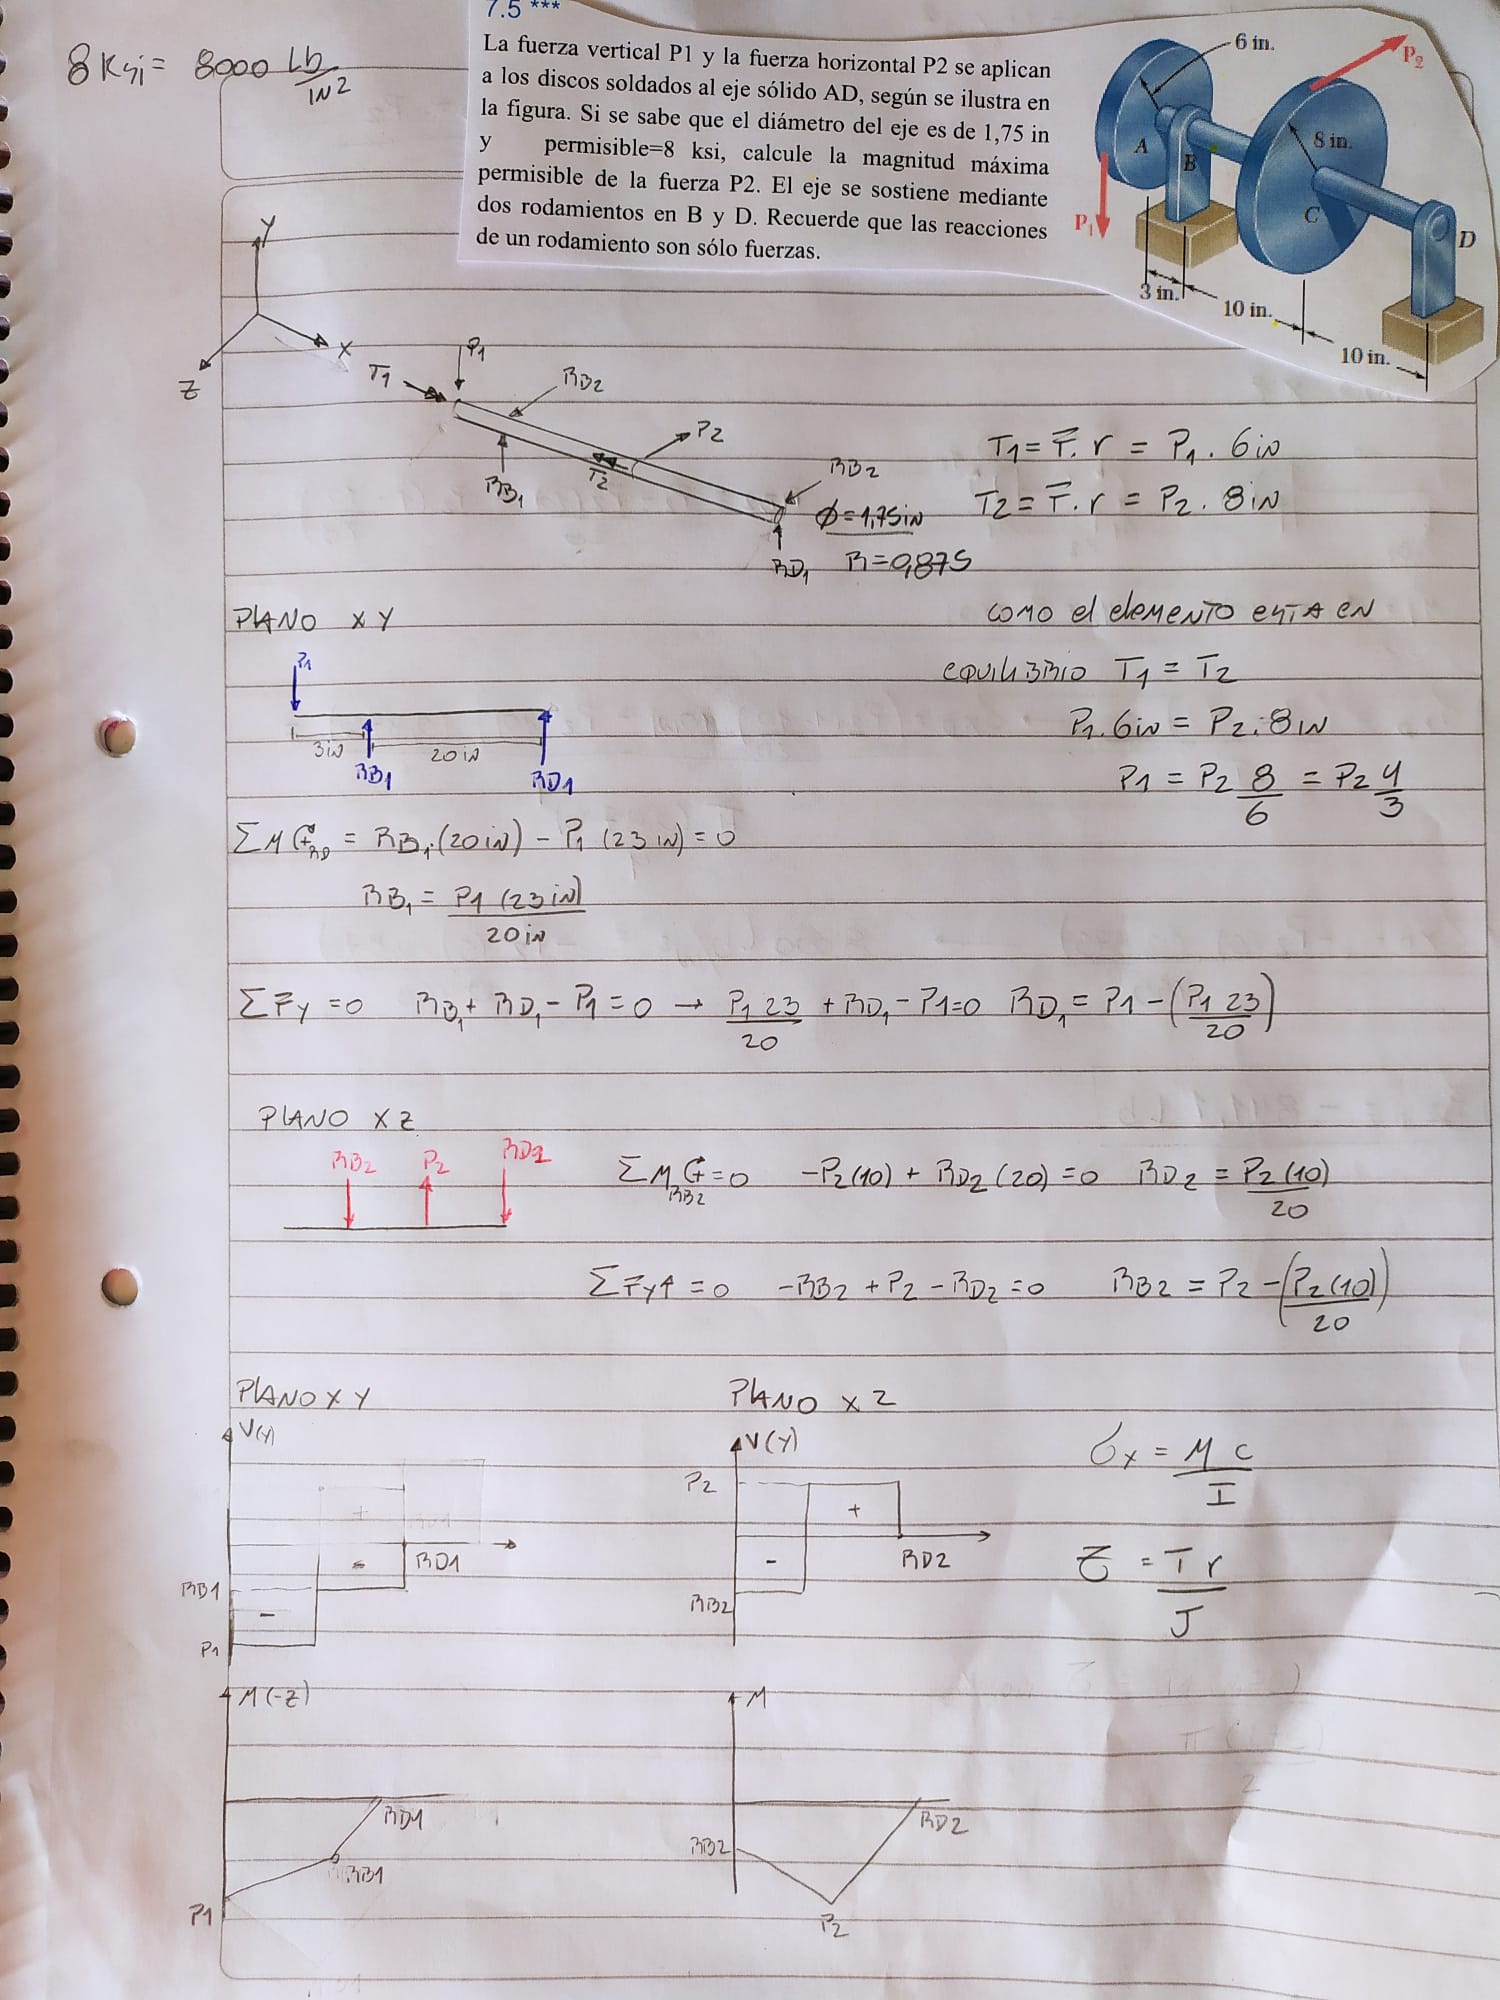 7.5 ***
8 Ksi = 8000 Lb/IN2
La fuerza vertical P1 y la fuerza horizontal P2 se aplican
a los discos soldados al eje sólido AD, según se ilustra en
la figura. Si se sabe que el diámetro del eje es de 1,75 in
y permisible=8 ksi, calcule la magnitud máxima
permisible de la fuerza P2. El eje se sostiene mediante
dos rodamientos en B y D. Recuerde que las reacciones
de un rodamiento son sólo fuerzas.
6 in.
P2
8 in.
A
B
C
D
P1
3 in.
10 in.
10 in.
Y
X
Z
T1
P1
RB2
P2
RB1
T2
RB2
RD1
Ø=1,75in
R=0,875
T1 = F. r = P1 . 6in
T2 = F. r = P2 . 8in
PLANO XY
P1
3in
20 in
RB1
RD1
como el elemento esta en
equilibrio T1 = T2
P1. 6in = P2. 8in
P1 = P2 8/6 = P2 4/3
ΣM RD = RB1.(20in) - P1 (23 in) = 0
RB1 = P1 (23in)/20in
ΣFy = 0 RB1 + RD1 - P1 = 0 → P1 23/20 + RD1 - P1=0 RD1 = P1 - (P1 23/20)
PLANO XZ
RB2
P2
RD2
ΣM RB2 + = 0 -P2(10) + RD2 (20) = 0 RD2 = P2 (10)/20
ΣFy↑ = 0 -RB2 + P2 - RD2 = 0 RB2 = P2 - (P2 (10)/20)
PLANO XY
PLANO XZ
V(Y)
+
-
RD1
RB1
-
P1
V(Y)
P2
+
-
RD2
RB2
σx = M c/I
τ = T r/J
M(-Z)
RD1
RB1
P1
M
RB2
RD2
P2